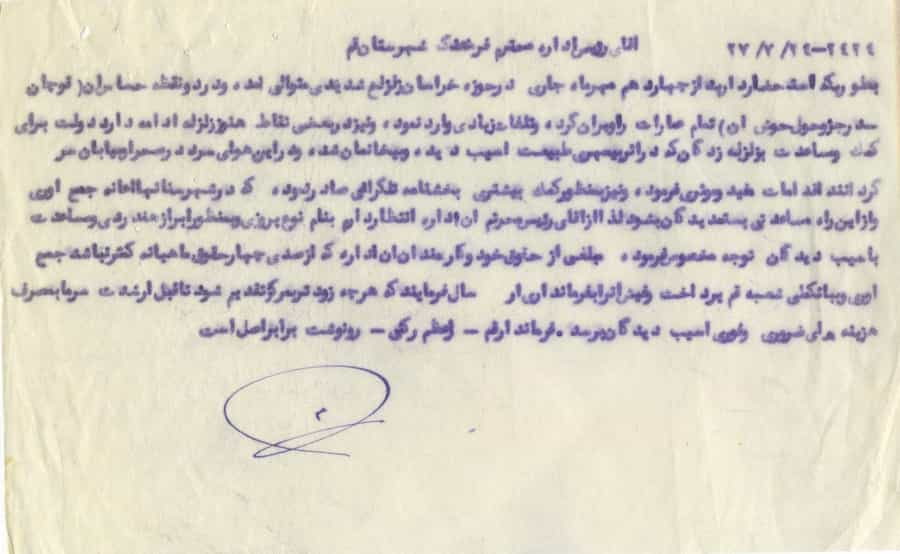 ۲۴۲۴-۲۷/۷/۲۴ اقای رییس اداره محترم فرهنگ شهرستان قم
بطوریکه استحضار دارید از چهاردهم مهرماه جاری در حوزه خراسان زلزله شدیدی متوالی شده و در دو نقطه حساس ان (قوچان
درجز و حول و حوش ان) تمام عمارات را ویران کرده و تلفات زیادی وارد نموده و نیز در بعضی نقاط هنوز زلزله ادامه دارد دولت برای
کمک و مساعدت بزلزله زدگان که در اثر طبیعت اسیب دیده و بیخانمان شده و در این هوای سرد در صحرا و بیابان سر
کردانند اقدامات مفید و موثری فرموده و نیز بمنظور کمک بیشتری بخشنامه تلگرافی صادر نموده که در شهرستانها اعانه جمع اوری
و از این راه مساعدتی بستمدیدگان بشود لذا از اقای رییس محترم ان اداره انتظار دارم بنام نوع پروری و بمنظور ابراز همدردی و مساعدت
باسیب دیدگان توجه مخصوص فرموده مبلغی از حقوق خود و کارمندان ان اداره که از صدی چهار حقوق ماهیانه کمتر نباشد جمع
اوری و ببانک ملی شعبه قم پرداخت و فیش انرا بفرمانداری ار سال فرمایند که هر چه زودتر بمرکز تقدیم شود تا قبل از شدت سرما بمصرف
هزینه های ضروری و فوری اسیب دیدگان برسد . فرماندار قم - اعظم زنگنه - رونوشت برابر اصل است